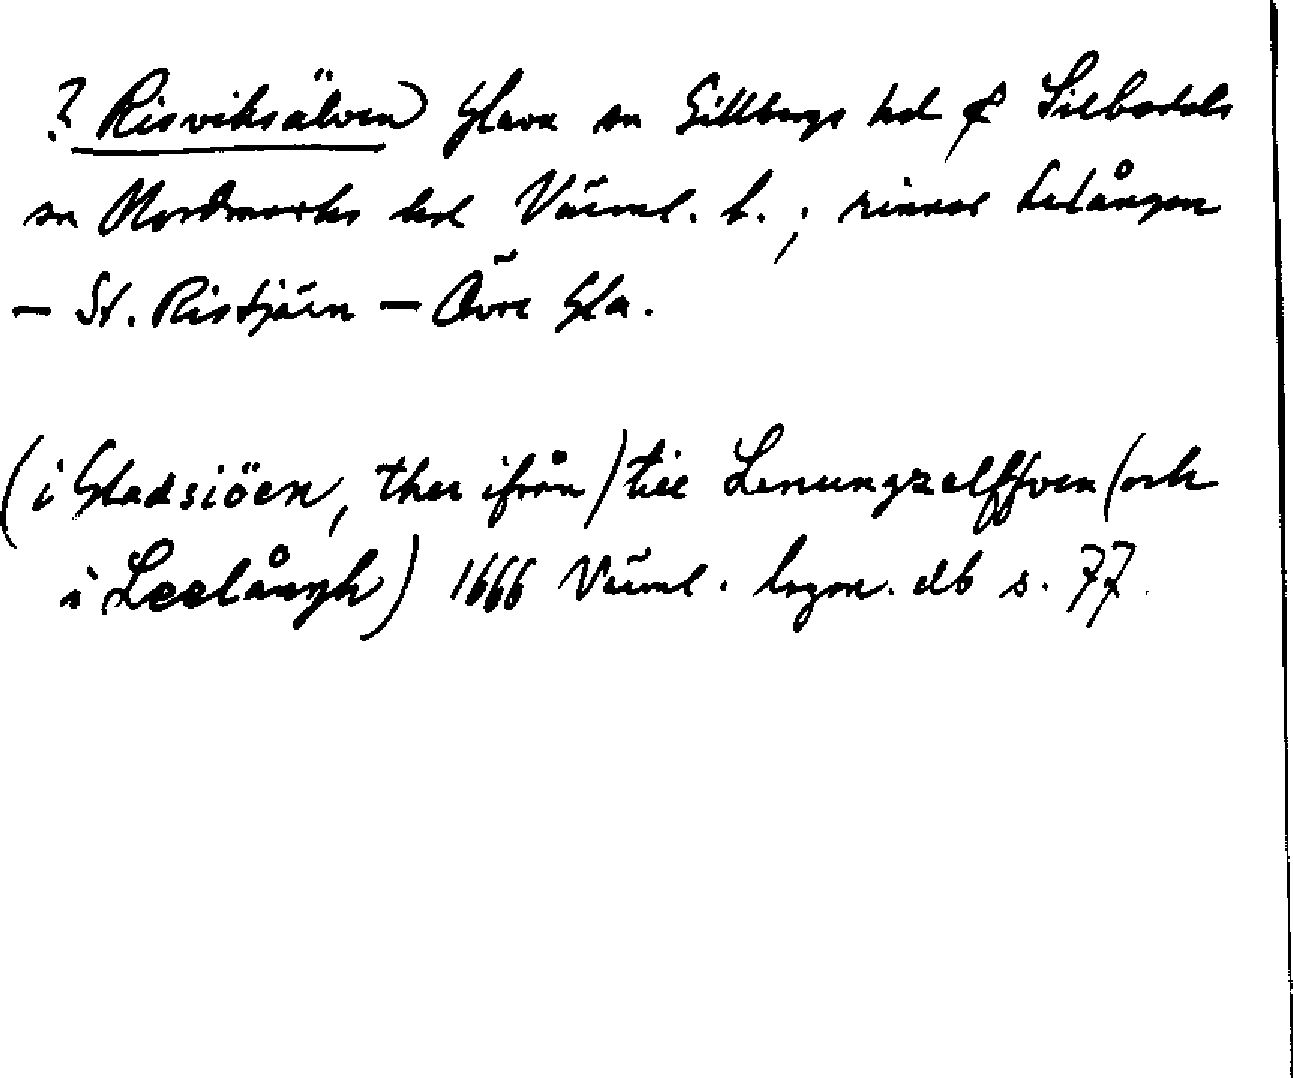 ? Risviksälven) Glava sn Gillbergs hd & Silbodals
sn Nordmarks hd Värml. l.; rinner Lelången
— St. Ristjärn — Övre Gla.
(i Gladsiöen, ther ifrån) till Lenungzelffven (och
i Leelångh) 1666 Värml. lagm. db s. 77.